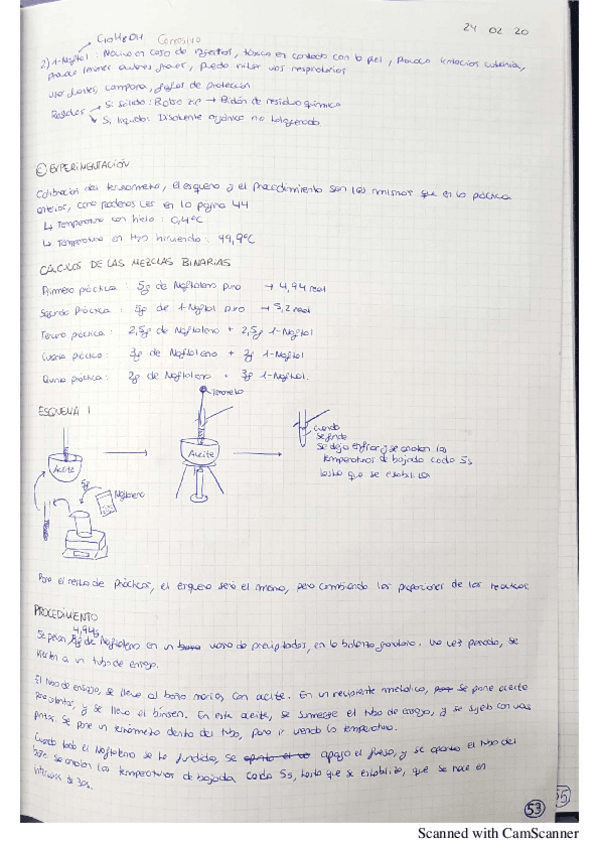 24 02 20
C10H8OH Corrosivo
2) 1-Naftol: Nocivo en caso de ingestión, tóxico en contacto con la piel, provoca irritación cutánea,
provoca lesiones oculares graves, puede irritar vías respiratorias
usar guantes, campana, gafas de protección
Residuos Si sólido: Bolsa zip → Bidón de residuo químico
Si líquido: Disolvente orgánico no halogenado
EXPERIMENTACIÓN
Calibración del termómetro, el esquema y el procedimiento son los mismos que en la práctica
anterior, como podemos ver en la página 44
↳ Temperatura con hielo: 0,4ºC
↳ Temperatura en H2O hirviendo: 99,9ºC
CÁLCULOS DE LAS MEZCLAS BINARIAS
Primera práctica: 5g de Naftaleno puro → 4,94 real
Segunda práctica: 5g de 1-Naftol puro → 5,2 real
Tercera práctica: 2,5g de Naftaleno + 2,5g 1-Naftol
Cuarta práctica: 3g de Naftaleno + 2g 1-Naftol
Quinta práctica: 2g de Naftaleno + 3g 1-Naftol.
ESQUEMA 1
Termómetro
Aceite
Aceite
cuando
se funde
se deja enfriar y se anotan las
temperaturas de bajada cada 5s
hasta que se estabiliza
5g
Naftaleno
Para el resto de prácticas, el esquema será el mismo, pero cambiando las proporciones de los reactivos
PROCEDIMIENTO
4,94g
Se pesan de Naftaleno en un vaso de precipitados, en la balanza granatario. Una vez pesado, se
vierten a un tubo de ensayo.
El tubo de ensayo, se lleva al baño maría, con aceite. En un recipiente metálico, se pone aceite
y se lleva al bunsen. En este aceite, se sumerge el tubo de ensayo, y se sujeta con unas
pinzas. Se pone un termómetro dentro del tubo, para ir viendo la temperatura.
Cuando todo el Naftaleno se ha fundido, se apaga el fuego, y se el tubo del
baño. Se anotan las temperaturas de bajada cada 5s, hasta que se estabiliza, que se hace en
intervalos de 30s.
53
55
Scanned with CamScanner